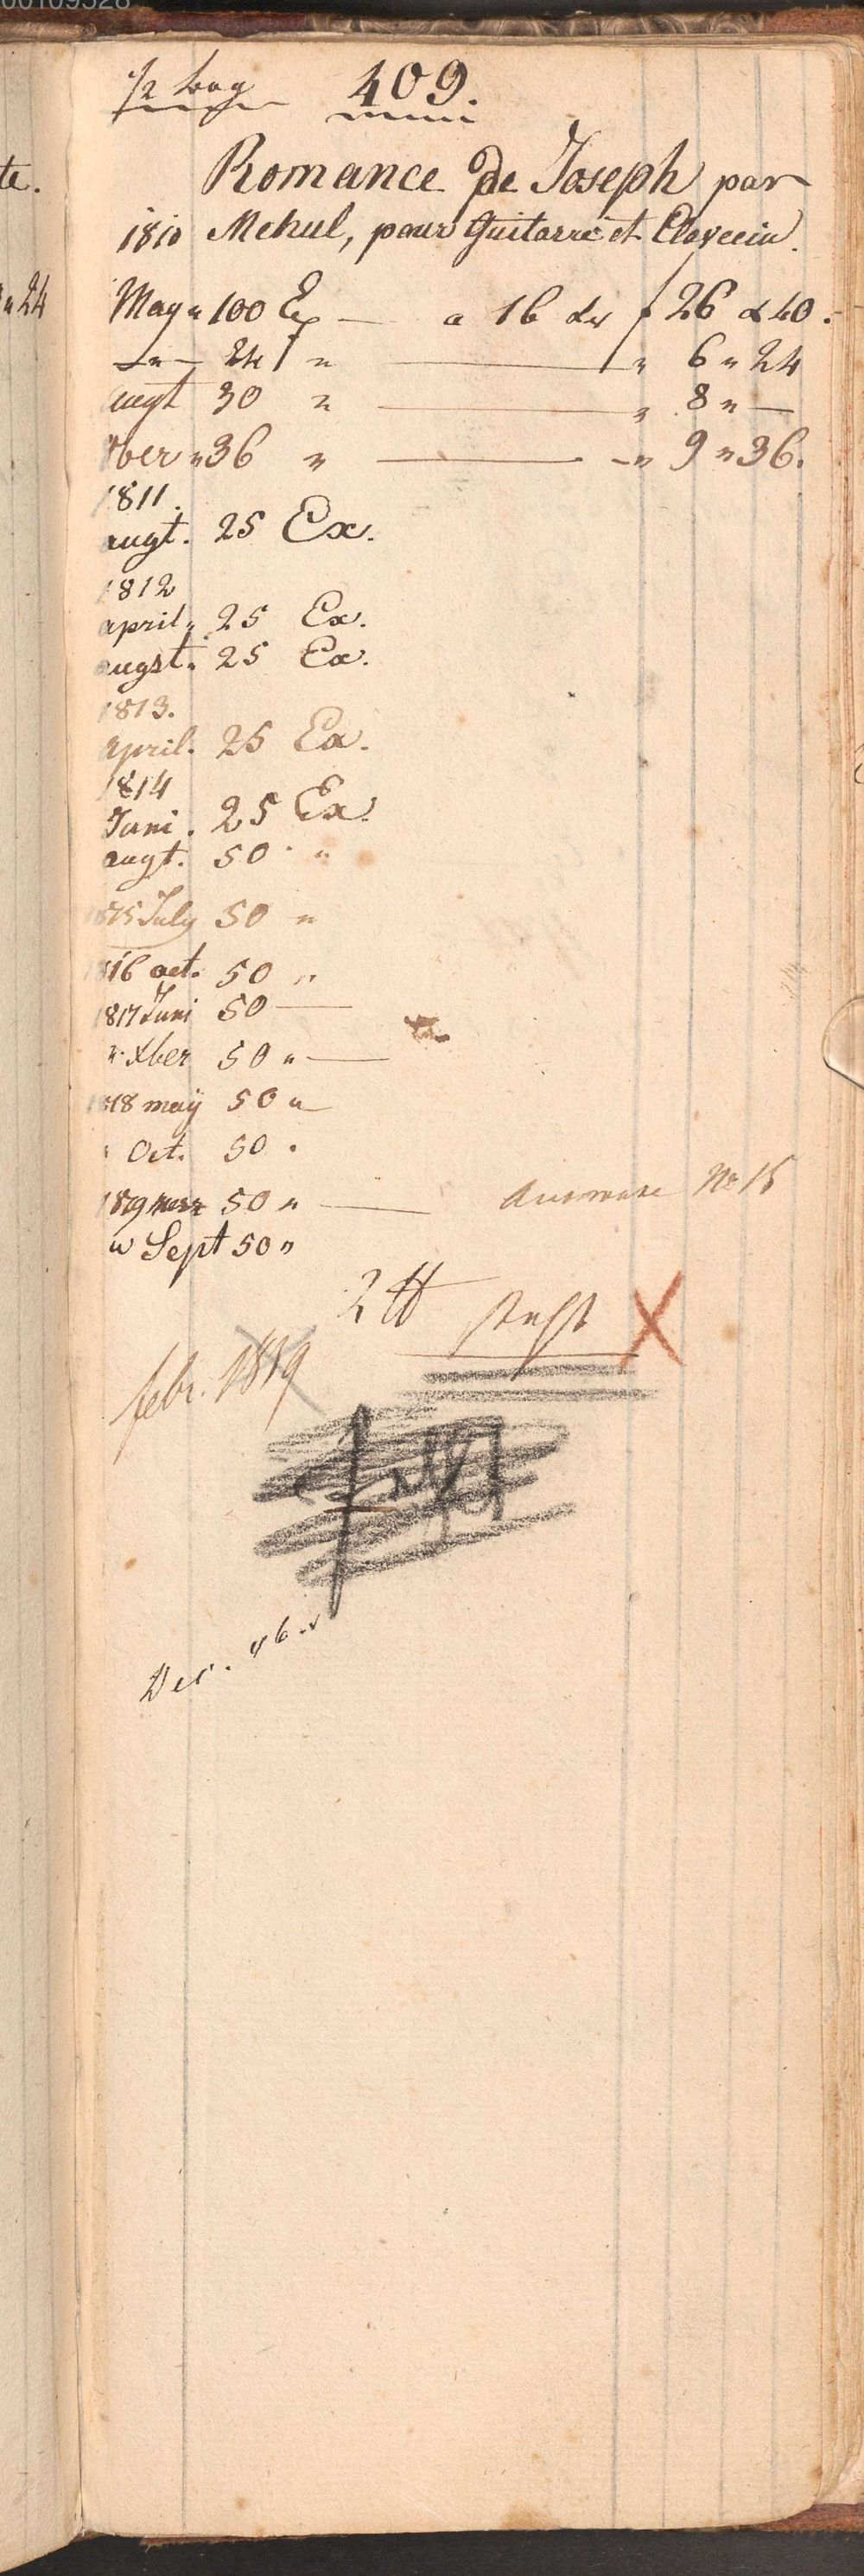 00109528
te.
" 24
1/2 bog 409.
Romance de Joseph par
1810 Mehul, pour Guitarre et Clavecin.
May " 100 Ex — a 16 f 26 x 40.
— " — 24 " — " 6 " 24
augt 30 " — " 8 " —
ber " 36 " — " 9 " 36.
1811.
augt. 25 Ex.
1812
april " 25 Ex.
augst. 25 Ex.
1813.
april. 25 Ex.
1814
Juni. 25 Ex.
augt. 50 "
1815 July 50 "
1816 oct. 50 "
1817 Juni 50 —
" Xber 50 " —
1818 maÿ 50 "
" Oct. 50 "
1819 merz 50 " — No 15
" Sept 50 "
2 tt X
febr. 1839
Dec. 46.